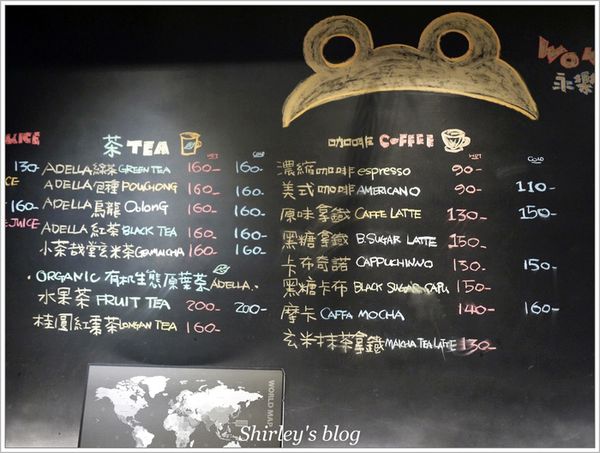 WO
永樂
JUICE
茶 TEA HOT COLD
130- ADELLA 綠茶 GREEN TEA 160- 160-
CE ADELLA 包種 POUCHONG 160- 160-
160- ADELLA 烏龍 OOLONG 160- 160-
E JUICE ADELLA 紅茶 BLACK TEA 160- 160-
小茶栽堂玄米茶 GENMAICHA 160- 160-
·ORGANIC 有机生態原葉茶 ADELLA..
水果茶 FRUIT TEA 200- 200-
桂圓紅棗茶 LONGAN TEA 160-
咖啡 COFFEE HOT COLD
濃縮咖啡 espresso 90-
美式咖啡 AMERICANO 90- 110-
原味拿鐵 CAFFE LATTE 130- 150-
黑糖拿鐵 B.SUGAR LATTE 150-
卡布奇諾 CAPPUCHINNO 130- 150-
黑糖卡布 BLACK SUGAR CAPU 150-
摩卡 CAFFA MOCHA 140- 160-
玄米抹茶拿鐵 MAKCHA TEA LATTE 130-
WORLD MAP
Shirley's blog